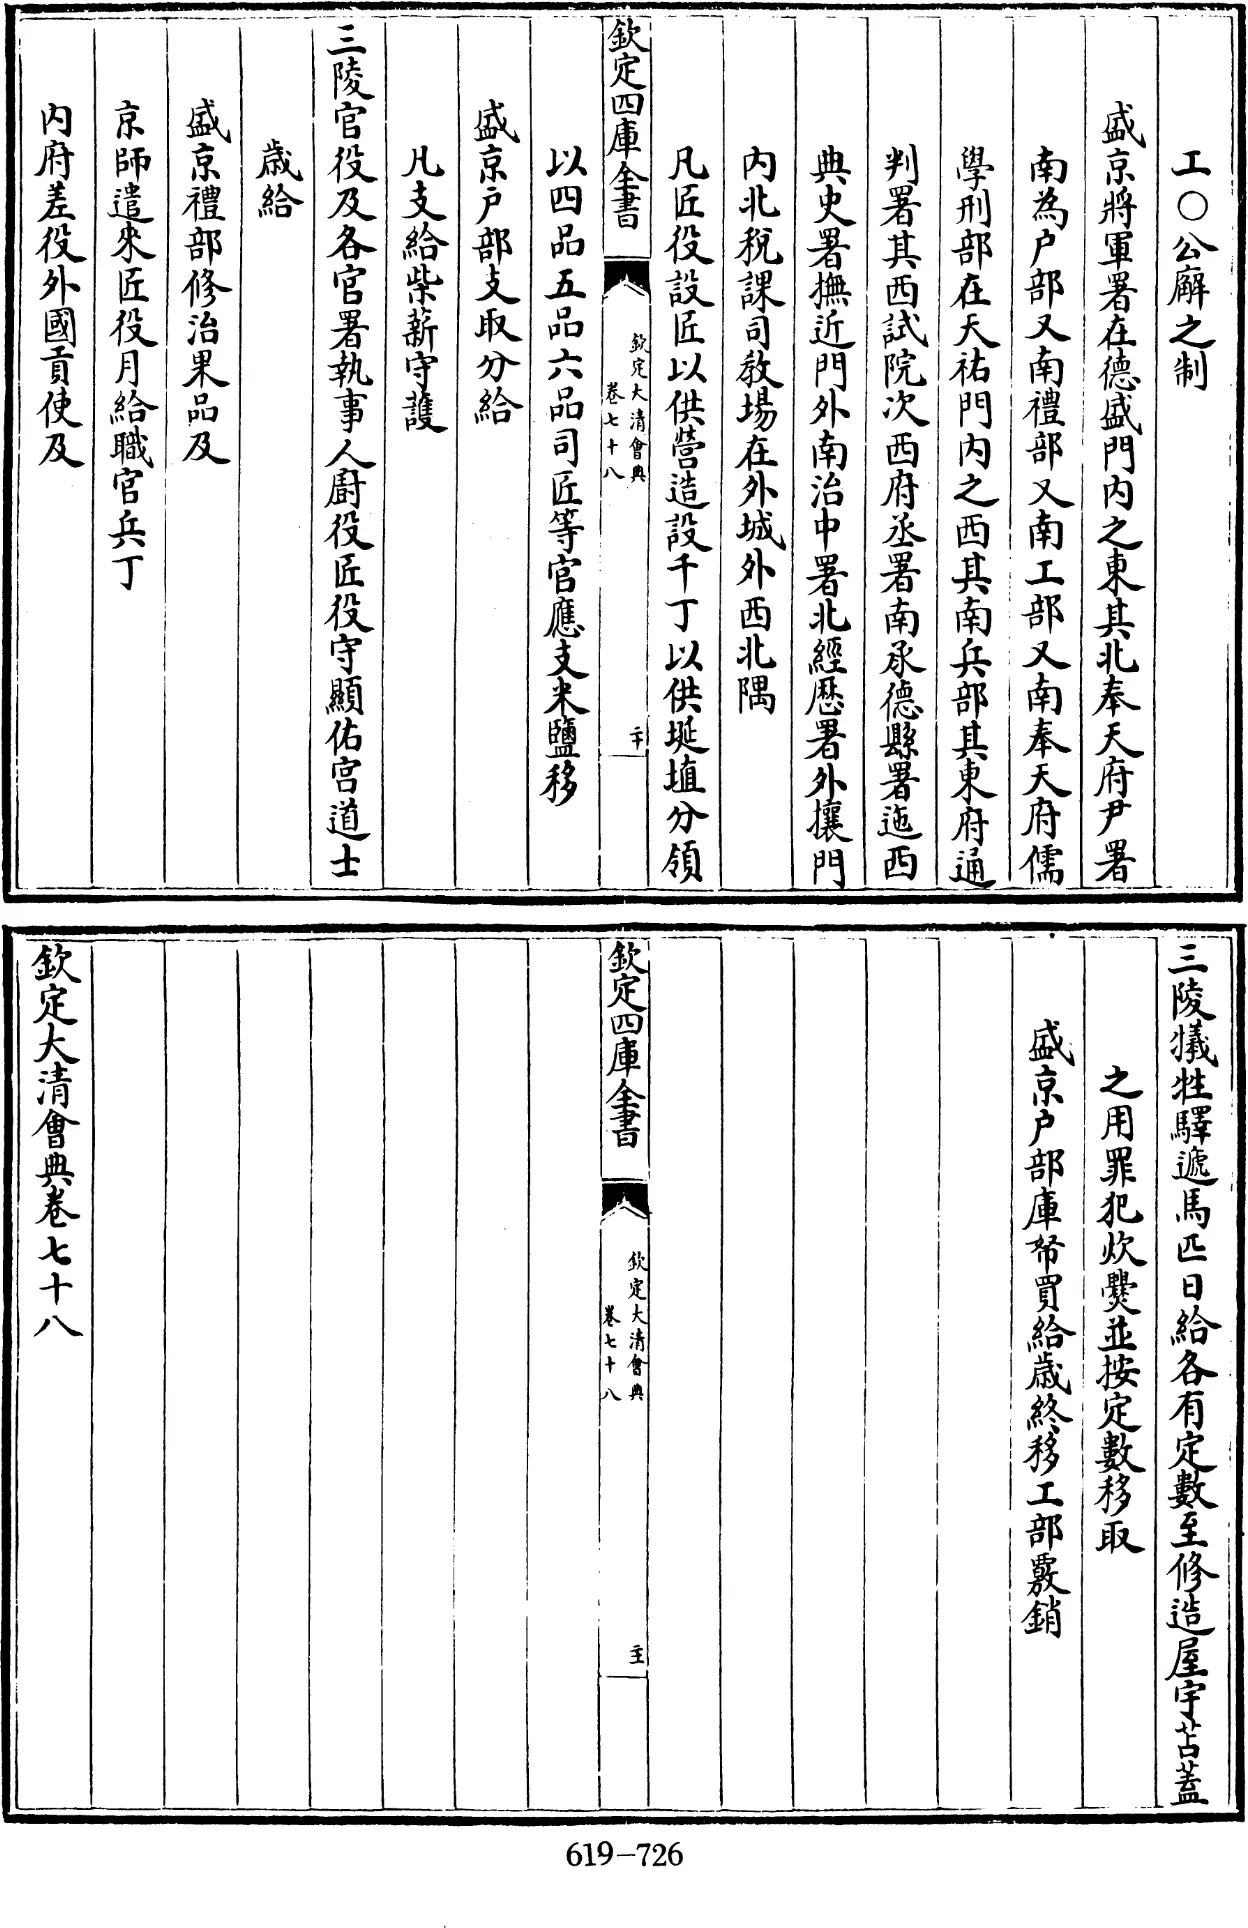 工○公廨之制
盛京將軍署在德盛門内之東其北奉天府尹署
南為户部又南禮部又南工部又南奉天府儒
學刑部在天祐門内之西其南兵部其東府通
判署其西試院次西府丞署南承德縣署迤西
典史署撫近門外南治中署北經歷署外攘門
内北稅課司教場在外城外西北隅
凡匠役設匠以供營造設千丁以供埏埴分領
欽定四庫全書
欽定大清會典
卷七十八
二十
以四品五品六品司匠等官應支米鹽移
盛京户部支取分給
凡支給柴薪守護
三陵官役及各官署執事人廚役匠役守顯佑宫道士
歲給
盛京禮部修治果品及
京師遣來匠役月給職官兵丁
内府差役外國貢使及
三陵犧牲驛遞馬匹日給各有定數至修造屋宇苫蓋
之用罪犯炊爨並按定數移取
盛京户部庫帑買給歲終移工部覈銷
欽定四庫全書
欽定大清會典
卷七十八
主
欽定大清會典卷七十八
619-726